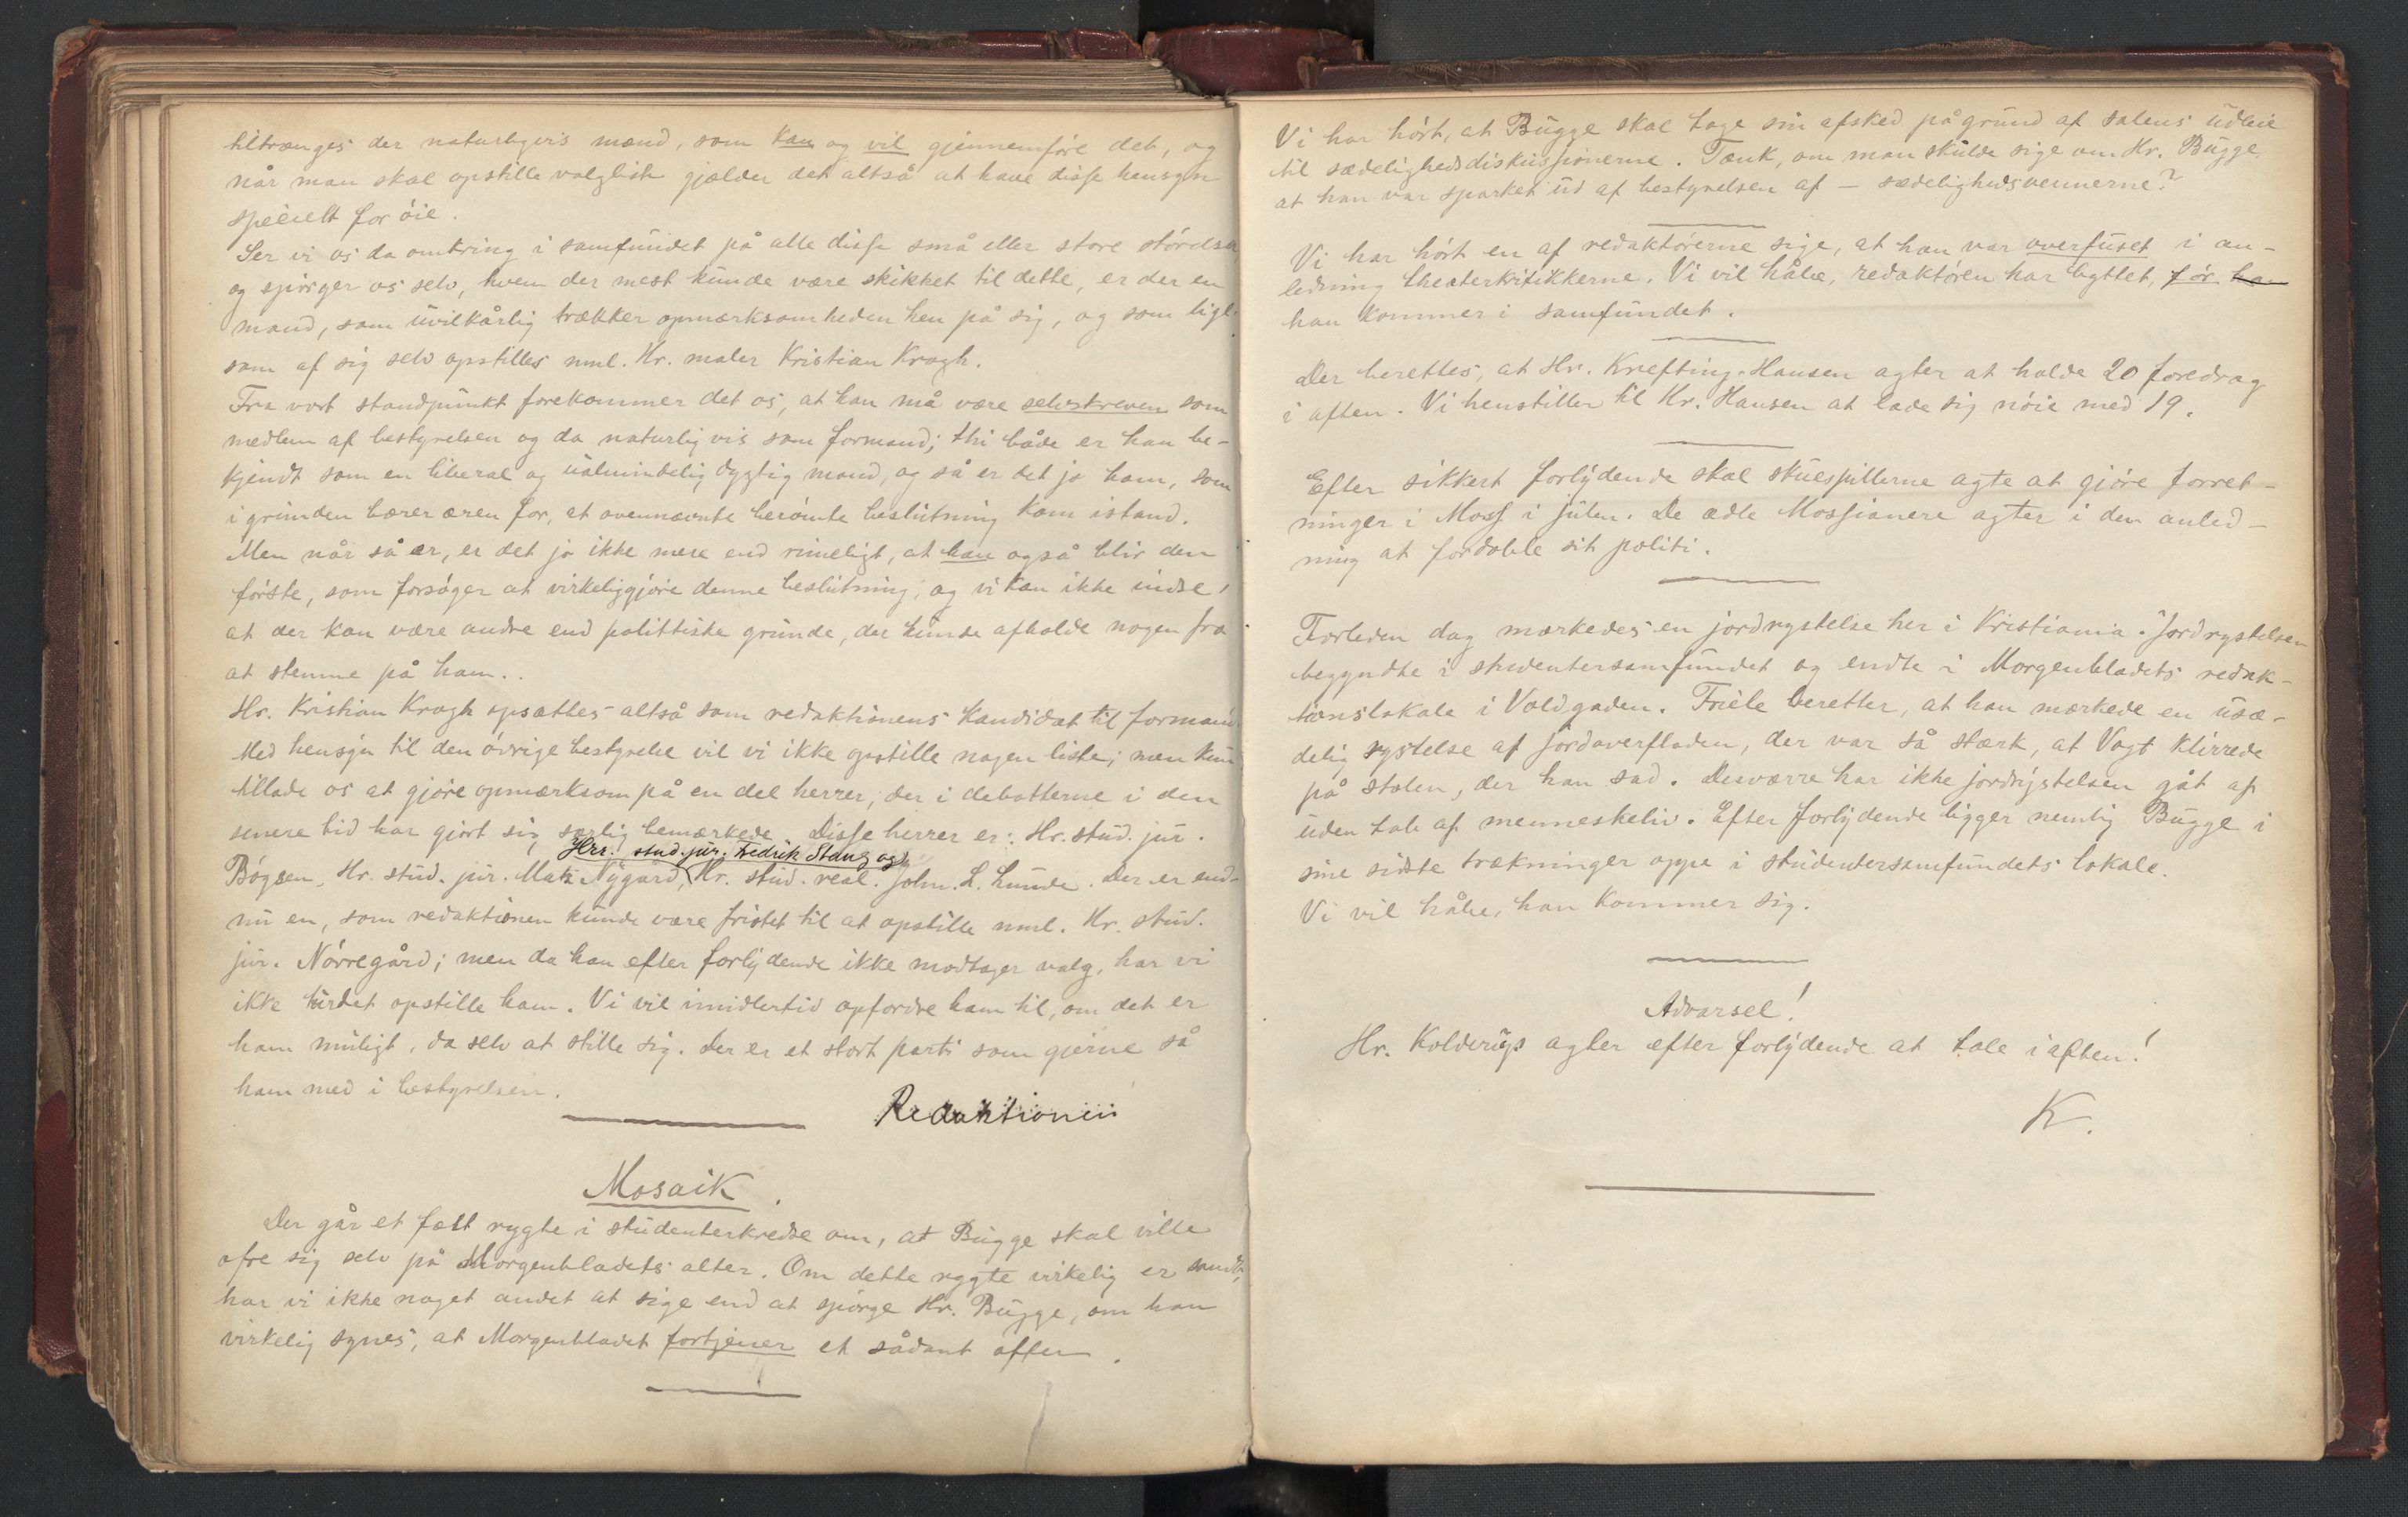 tiltrænges der naturligvis mænd, som kan og vil gjennemføre det, og
når man skal opstille valgliste gjælder det altså at have disse hensyn
specielt for øie.
Ser vi os da omkring i samfundet på alle disse små eller store størrelser
og spørger os selv, hvem der mest kunde være skikket til dette, er der en
mand, som uvilkårlig trækker opmærksomheden hen på sig, og som lige
som af sig selv opstilles nml. Hr. maler Kristian Krogh.
Fra vort standpunkt forekommer det os, at han må være selvskreven som
medlem af bestyrelsen og da naturligvis som formand; thi både er han be-
kjendt som en liberal og ualmindelig dygtig mand, og så er det jo ham, som
i grunden bærer æren for, at ovennævnte berømte beslutning kom istand.
Men når så er, er det jo ikke mere end rimeligt, at han også blir den
første, som forsøger at virkeliggjøre denne beslutning, og vi kan ikke indse,
at der kan være andre end polittiske grunde, der kunde afholde nogen fra
at stemme på ham..
Hr. Kristian Krogh opsættes altså som redaktionens kandidat til formand
Med hensyn til den øvrige bestyrelse vil vi ikke opstille nogen liste; men kun
tillade os at gjøre opmærksom på en del herrer, der i debatterne i den
senere tid har gjort sig særlig bemærkede. Disse herrer er: Hr. stud. jur.
Hrr. stud. jur. Fredrik Stang og
Bøgsen, Hr. stud. jur. Mats Nygård, Hr. stud. real. John. L. Lunde. Der er end-
nu en, som redaktionen kunde være fristet til at opstille nml. Hr. stud.
jur. Nørregård; men da han efter forlydende ikke modtager valg, har vi
ikke turdet opstille ham. Vi vil imidlertid opfordre ham til, om det er
ham muligt, da selv at stille sig. Der er et stort parti som gjerne så
ham med i bestyrelsen.
Redaktionen
Mosaik.
Der går et fælt rygte i studenterkredse om, at Bugge skal ville
ofre sig selv på Morgenbladets alter. Om dette rygte virkelig er sandt,
har vi ikke noget andet at sige end at spørge Hr. Bugge, om han
virkelig synes, at Morgenbladet fortjener et sådant offer.
Vi har hørt, at Bugge skal tage sin afsked på grund af salens udleie
til sædelighedsdiskussionerne. Tænk, om man skulde sige om Hr. Bugge
at han var sparket ud af bestyrelsen af – sædelighedsvennerne?
Vi har hørt en af redaktørerne sige, at han var overfuset i an-
ledning theaterkritikkerne. Vi vil håbe, redaktøren har lyttet, før ha
han kommer i samfundet.
Der berettes, at Hr. Krefting-Hansen agter at holde 20 foredrag
i aften. Vi henstiller til Hr. Hansen at lade sig nøie med 19.
Efter sikkert forlydende skal skuespillerne agte at gjøre forret-
ninger i Moss i julen. De ædle Mossianere agter i den anled-
ning at fordoble sit politi.
Forleden dag mærkedes en jordrystelse her i Kristiania. Jordrystelsen
begyndte i studentersamfundet og endte i Morgenbladets redak-
tionslokale i Voldgaden. Friele beretter, at han mærkede en usæ-
delig rystelse af jordoverfladen, der var så stærk, at Vogt klirrede
på stolen, der han sad. Desværre har ikke jordrystelsen gåt af
uden tab af menneskeliv. Efter forlydende ligger nemlig Bugge i
sine sidste trækninger oppe i studentersamfundets lokale.
Vi vil håbe, han kommer sig.
Advarsel!
Hr. Kolderup agter efter forlydende at tale i aften!
K.